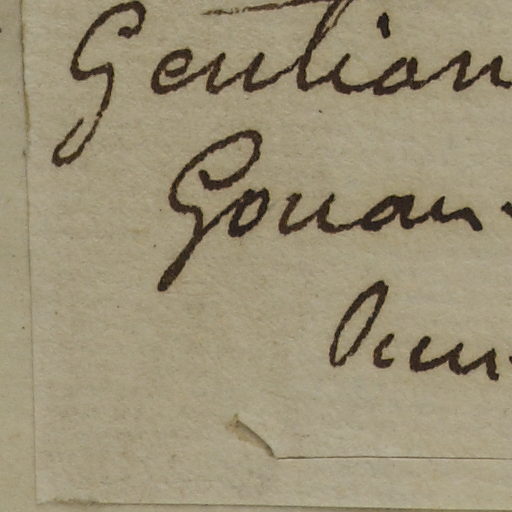 Gentian
Gouan.